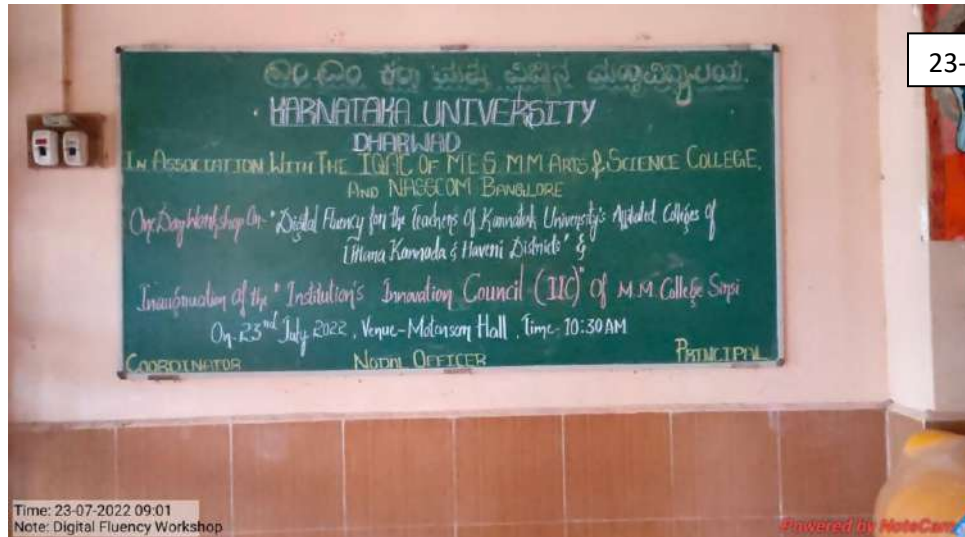 ಎಂ.ಎಂ. ಕಲಾ ಮತ್ತು ವಿಜ್ಞಾನ ಮಹಾವಿದ್ಯಾಲಯ.
KARNATAKA UNIVERSITY
DHARWAD
IN ASSOCIATION WITH THE IQAC OF MES MM ARTS & SCIENCE COLLEGE,
AND NASSCOM BANGLORE
One Day Workshop On - "Digital Fluency for the Teachers of Karnatak University's Colleges of
Uttara Kannada & Haveri Districts" &
Inauguration of the "Institution's Innovation Council (IIC)" Of M.M. College Sirsi
On - 23nd July 2022, Venue - Motensory Hall, Time - 10:30 AM
COORDINATOR NODAL OFFICER PRINCIPAL
23-
Time: 23-07-2022 09:01
Note: Digital Fluency Workshop
Powered by NoteCam